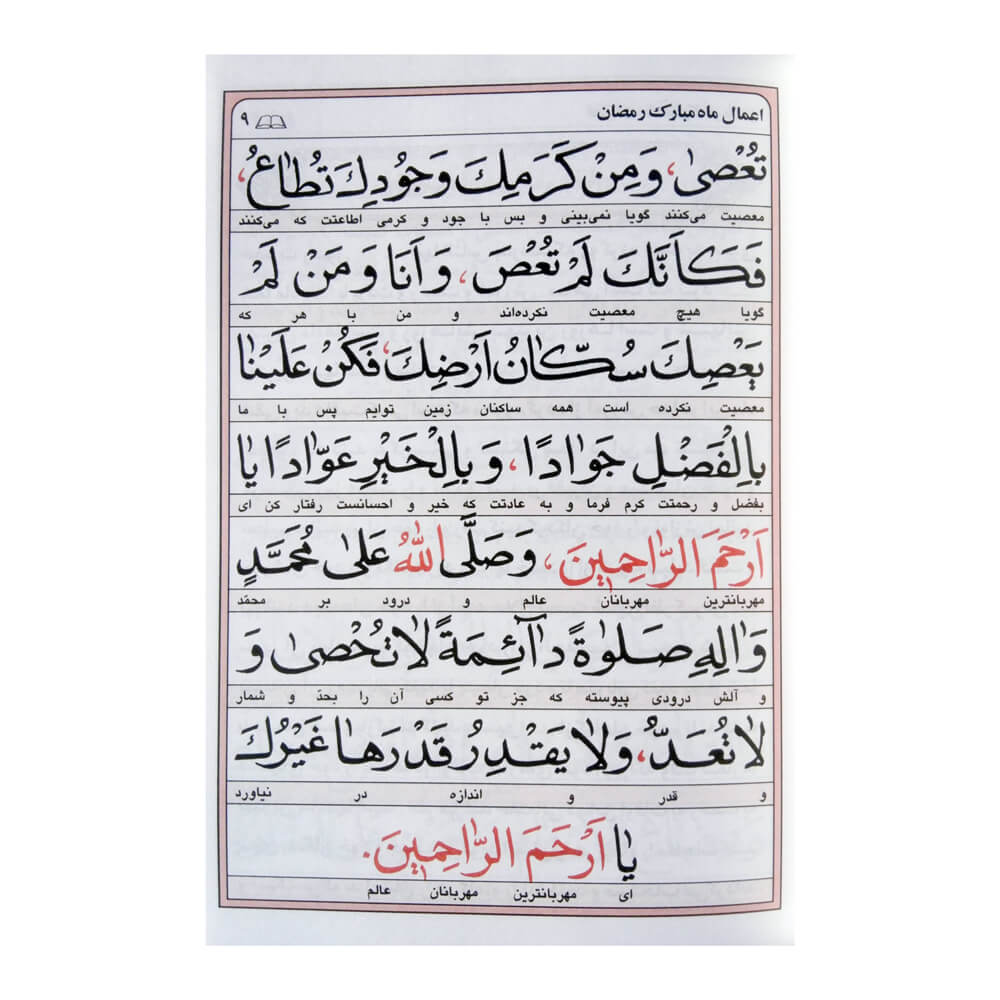 اعمال ماه مبارک رمضان ۹
تُعْصىٰ، وَمِنْ كَرَمِكَ وَجُودِكَ تُطاعُ،
معصیت می‌کنند گویا نمی‌بینی و بس با جود و کرمی اطاعتت که می‌کنند
فَكَاَنَّكَ لَمْ تُعْصَ، وَاَنَا وَمَنْ لَمْ
گویا هیچ معصیت نکرده‌اند و من با هر که
يَعْصِكَ سُكّٰانُ اَرْضِكَ، فَكُنْ عَلَيْنٰا
معصیت نکرده است همه ساکنان زمین توایم پس با ما
بِالْفَضْلِ جَوٰادًا، وَبِالْخَيْرِ عَوّٰادًا يٰا
بفضل و رحمتت کرم فرما و به عادتت که خیر و احسانست رفتار کن ای
اَرْحَمَ الرّٰاحِمينَ، وَصَلَّى اللّٰهُ عَلىٰ مُحَمَّدٍ
مهربانترین مهربانان عالم و درود بر محمّد
وَاٰلِهِ صَلوٰةً دٰآئِمَةً لٰا تُحْصىٰ وَ
و آلش درودی پیوسته که جز تو کسی آن را بحدّ و شمار
لٰا تُعَدُّ، وَلٰا يَقْدِرُ قَدْرَهٰا غَيْرُكَ
و قدر و اندازه در نیاورد
يٰا اَرْحَمَ الرّٰاحِمينَ.
ای مهربانترین مهربانان عالم